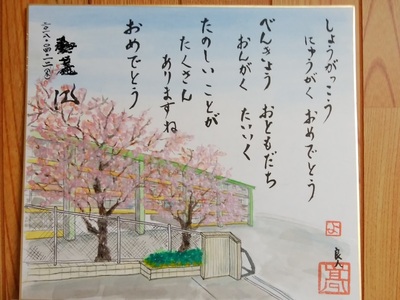 しょうがっこう
にゅうがく おめでとう
べんきょう おともだち
おんがく たいいく
たのしい ことが
たくさん
ありますね
おめでとう
よ
良人
髙